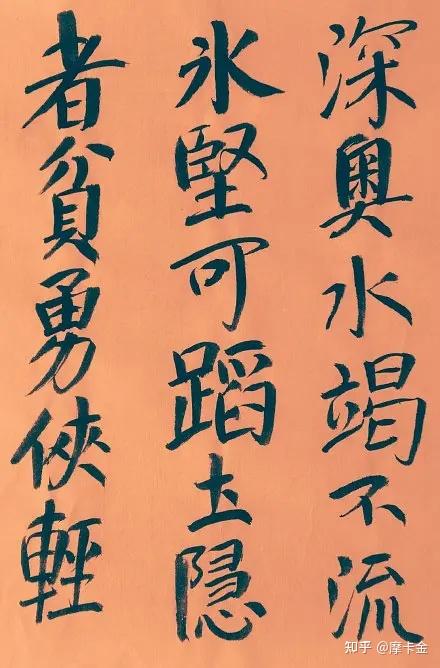 深奥水竭不流
氷堅可蹈土隐
者貧勇俠輕
知乎 @摩卡金